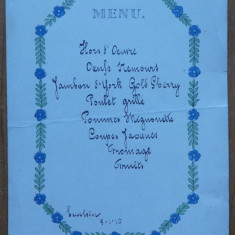 MENU.
Hors d'Oeuvre
Oeufs Nemours
Jambon d'York Gold Sherry
Poulet grillé
Pommes Mignonette
Coupes Jacques
Fromage
Fruits